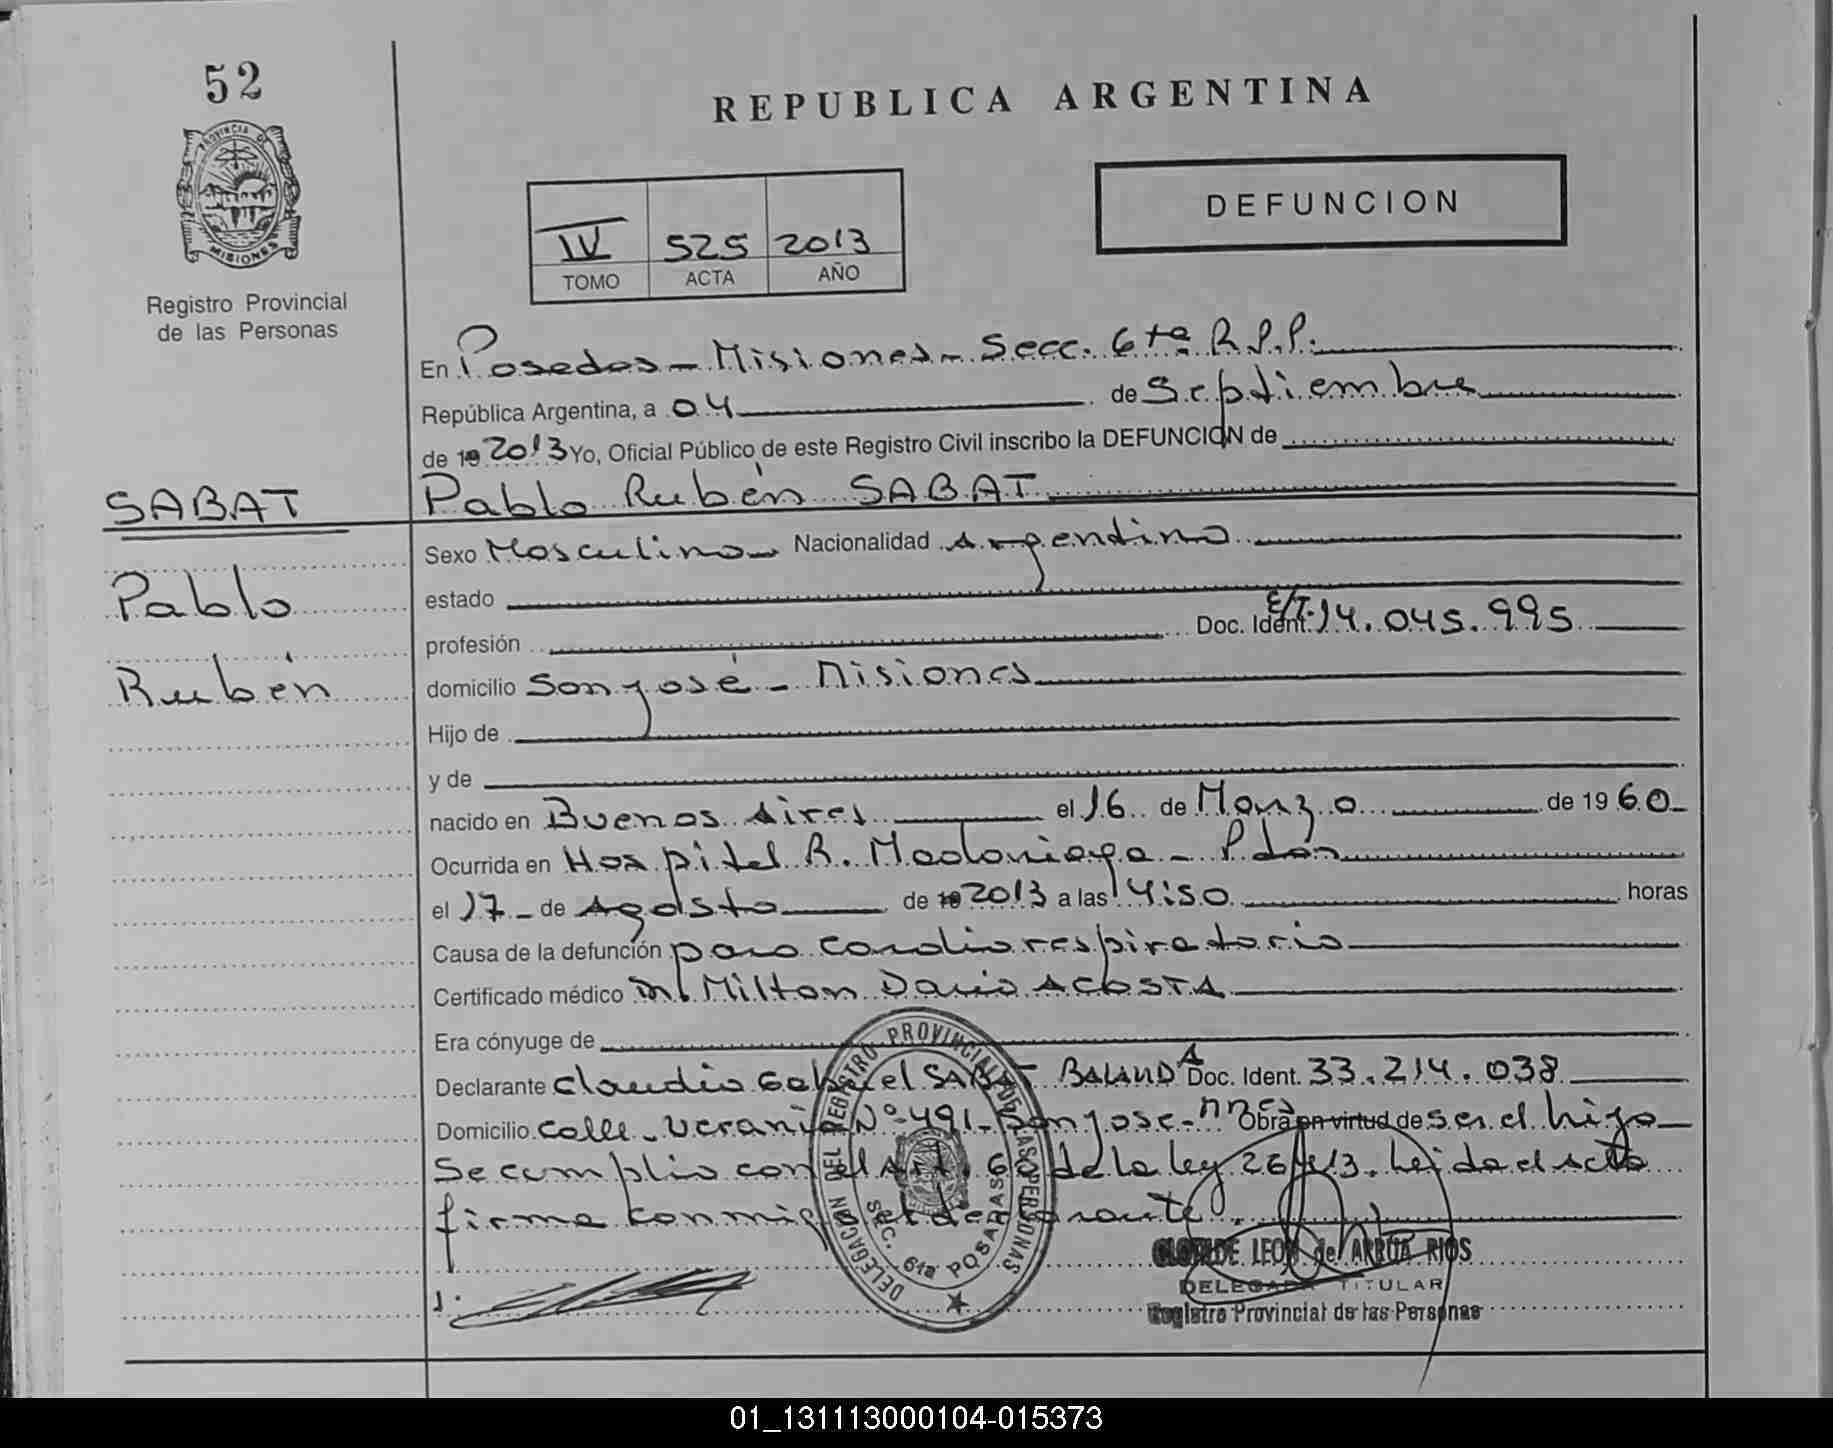 52
REPUBLICA ARGENTINA
PROVINCIA DE
MISIONES
Registro Provincial
de las Personas
DEFUNCION
IV 525 2013
TOMO ACTA AÑO
En Posadas - Misiones - Secc. 6ta R.P.P.
República Argentina, a 04 de Septiembre
de 19 2013 Yo, Oficial Público de este Registro Civil inscribo la DEFUNCION de
SABAT
Pablo
Rubén
Pablo Rubén SABAT
Sexo Masculino Nacionalidad Argentino
estado
profesión Doc. Ident. E/T. 14.045.995
domicilio San José - Misiones
Hijo de
y de
nacido en Buenos Aires el 16 de Marzo de 1960
Ocurrida en Hospital R. Madariaga - Pdas
el 17 - de Agosto de 19 2013 a las 14:50 horas
Causa de la defunción paro cardiorespiratorio
Certificado médico Dr Milton Dario ACOSTA
Era cónyuge de
Declarante Claudio Gabriel SABAT BALANDA Doc. Ident. 33.214.038
Domicilio calle - Ucrania Nº 491 - San José - Mnes Obra en virtud de ser el hijo
Se cumplio con el Art. 62 de la ley 26413. Leida el Acta
firma conmigo el declarante.
1.
DELEGACION DEL REGISTRO PROVINCIAL DE LAS PERSONAS
SEC. 6ta POSADAS
CLOTILDE LEON de ARRUA RIOS
DELEGADA TITULAR
Registro Provincial de las Personas
01_131113000104-015373